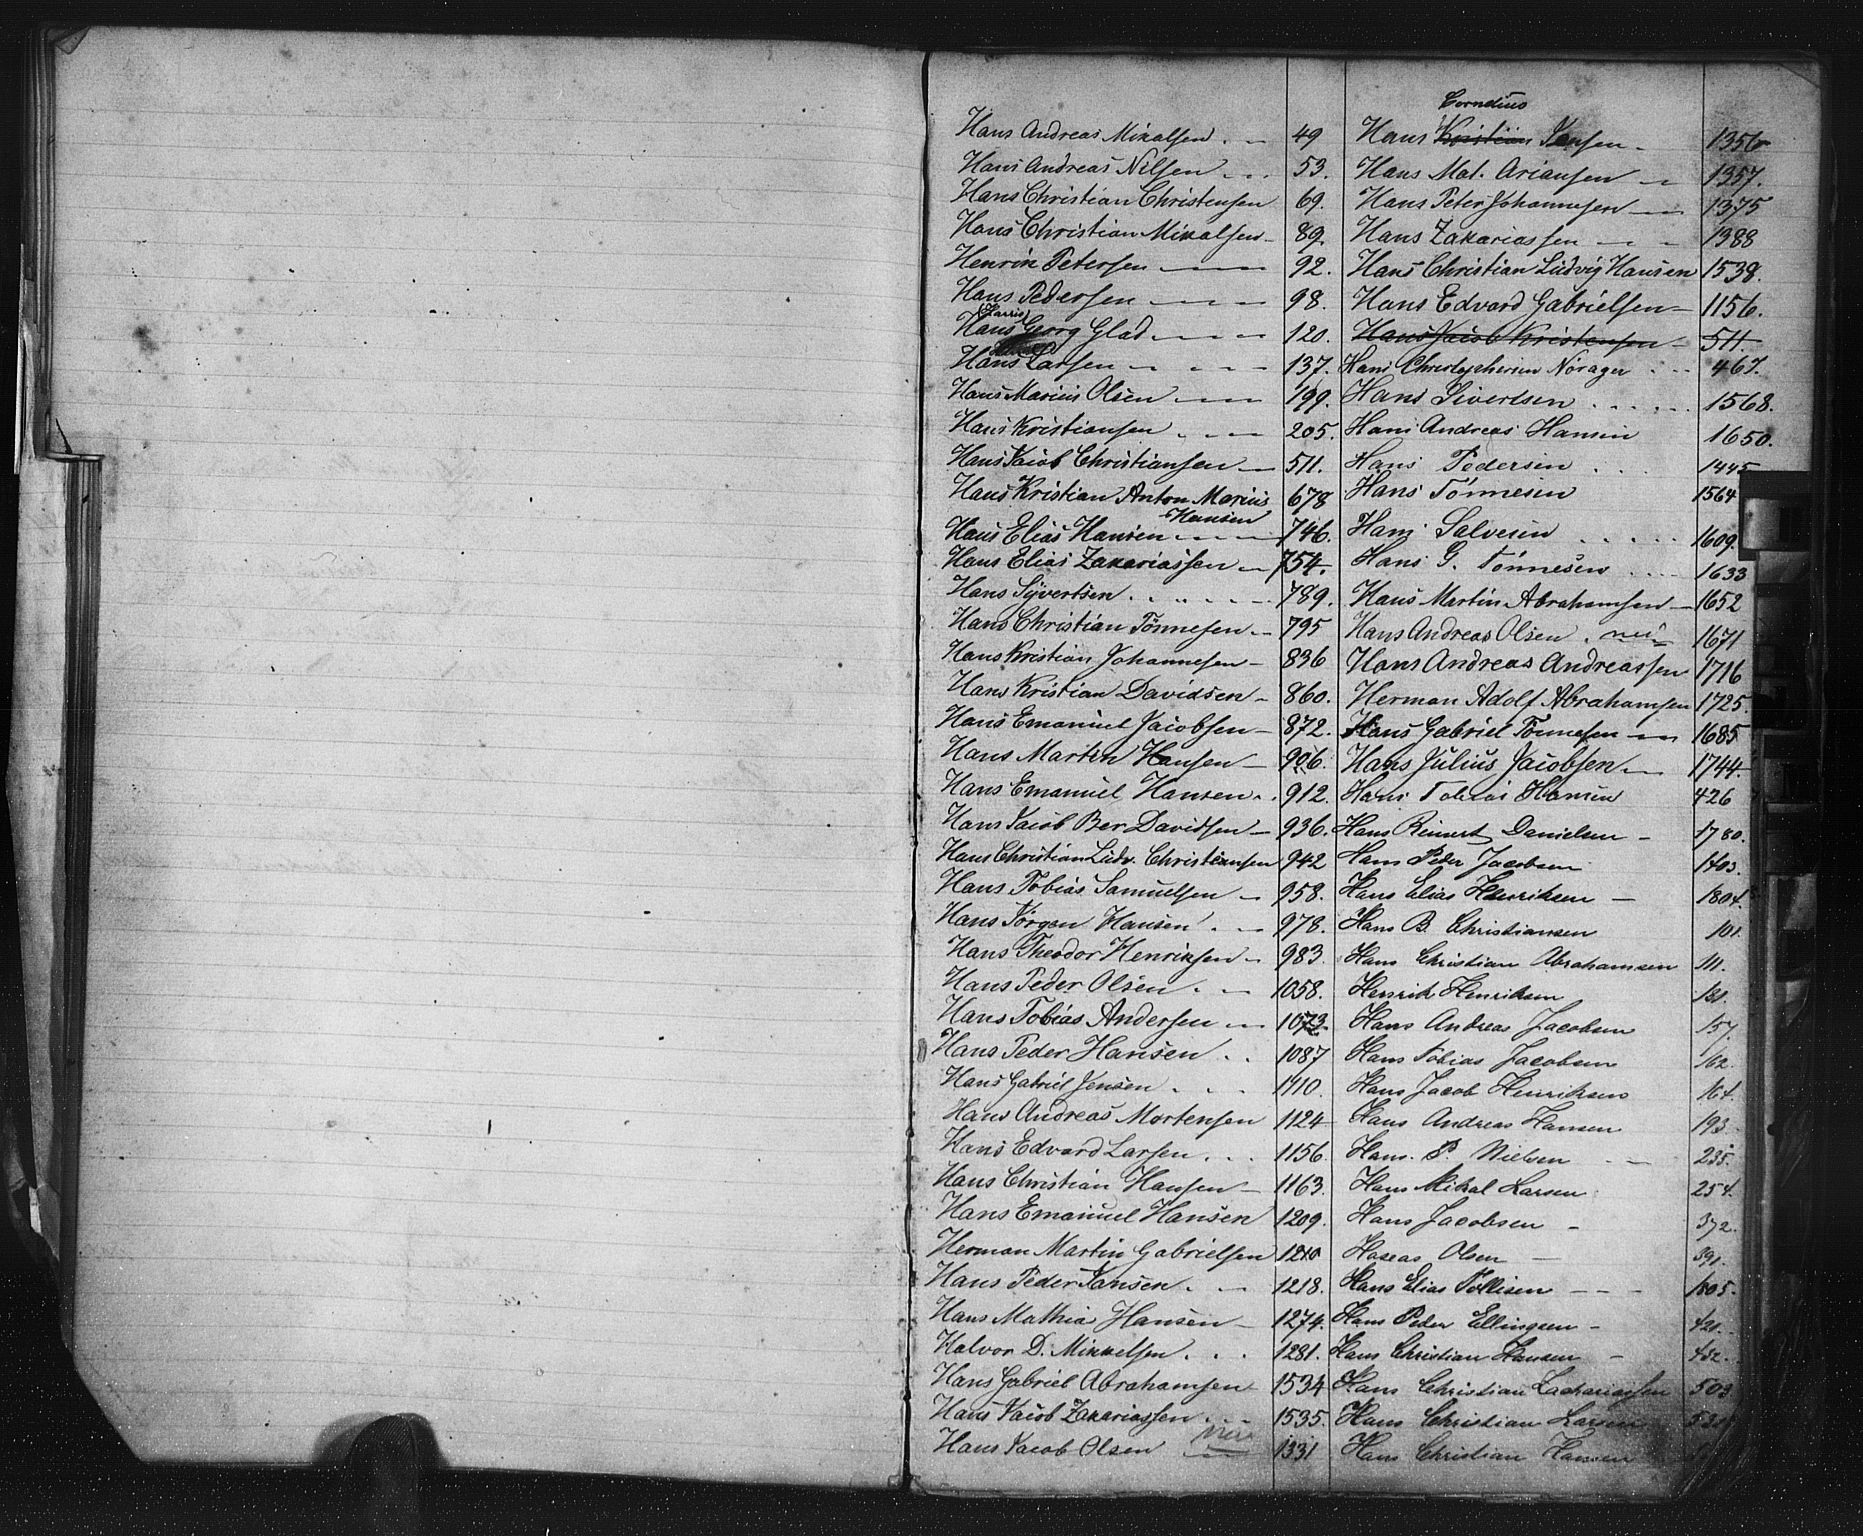 Hans Andreas Mikalsen 49
Hans Andreas Nilsen 53.
Hans Christian Christensen 69.
Hans Christian Mikalsen 89.
Henrik Petersen 92.
Hans Pedersen 98.
(Harris)
Hans Georg Glad 120.
Hans Larsen 137.
Hans Marius Olsen 199.
Hans Kristiansen 205.
Hans Jacob Christiansen 511.
Hans Kristian Anton Marius 678
Hansen
Hans Elias Hansen 746.
Hans Elias Zakariassen 754.
Hans Syvertsen 789.
Hans Christian Tönnesen 795
Hans Kristian Johannesen 836
Hans Kristian Davidsen 860.
Hans Emanuel Jacobsen 872.
Hans Martin Hansen 906.
Hans Emanuel Hansen 912.
Hans Jacob Ber Davidsen 936.
Hans Christian Ludv. Christiansen 942
Hans Tobias Samuelsen 958.
Hans Jørgen Hansen 978.
Hans Theodor Henriksen 983.
Hans Peder Olsen 1058.
Hans Tobias Andersen 1073
Hans Peder Hansen 1087
Hans Gabriel Jensen 1110.
Hans Andreas Mortensen 1124
Hans Edvard Larsen 1156.
Hans Christian Hansen 1163.
Hans Emanuel Hansen 1209.
Herman Martin Gabrielsen 1210
Hans Peder Jansen 1218.
Hans Mathias Hansen 1274.
Halvor D. Mikkelsen 1281.
Hans Gabriel Abrahamsen 1534
Hans Jacob Zakariassen 1535.
Hans Jacob Olsen 1331
Cornelius
Hans Kristian Jansen 1356
Hans Mat. Ariansen 1357.
Hans Peter Johannesen 1375
Hans Zakariassen 1388
Hans Christian Ludvig Hansen 1538.
Hans Edvard Gabrielsen 1156.
Hans Jacob Kristensen 511
Hans Christophersen Nörager 467.
Hans Sivertsen 1568.
Hans Andreas Hansen 1650.
Hans Pedersen 1445
Hans Tönnesen 1564
Hans Salvesen 1609.
Hans G. Tönnesen 1633
Hans Martin Abrahamsen 1652
Hans Andreas Olsen nei 1671
Hans Andreas Andreassen 1716
Herman Adolf Abrahamsen 1725.
Hans Gabriel Tönnesen 1685
Hans Julius Jacobsen 1744.
Hans Tobias Hansen 426
Hans Reinert Danielsen 1780.
Hans Peder Jacobsen 1403.
Hans Elias Henriksen 1804.
Hans B. Christiansen 101.
Hans Christian Abrahamsen 111.
Henrik Henriksen 131.
Hans Andreas Jacobsen 157.
Hans Tobias Jacobsen 162.
Hans Jacob Henriksen 164.
Hans Andreas Hansen 193
Hans. P. Nielsen 235.
Hans Mikal Larsen 254.
Hans Jacobsen 372.
Hoseas Olsen 391.
Hans Elias Tollisen 1805.
Hans Peder Ellingsen 421.
Hans Christian Hansen 432.
Hans Christian Zachariassen 503
Hans Christian Larsen
Hans Christian Hansen